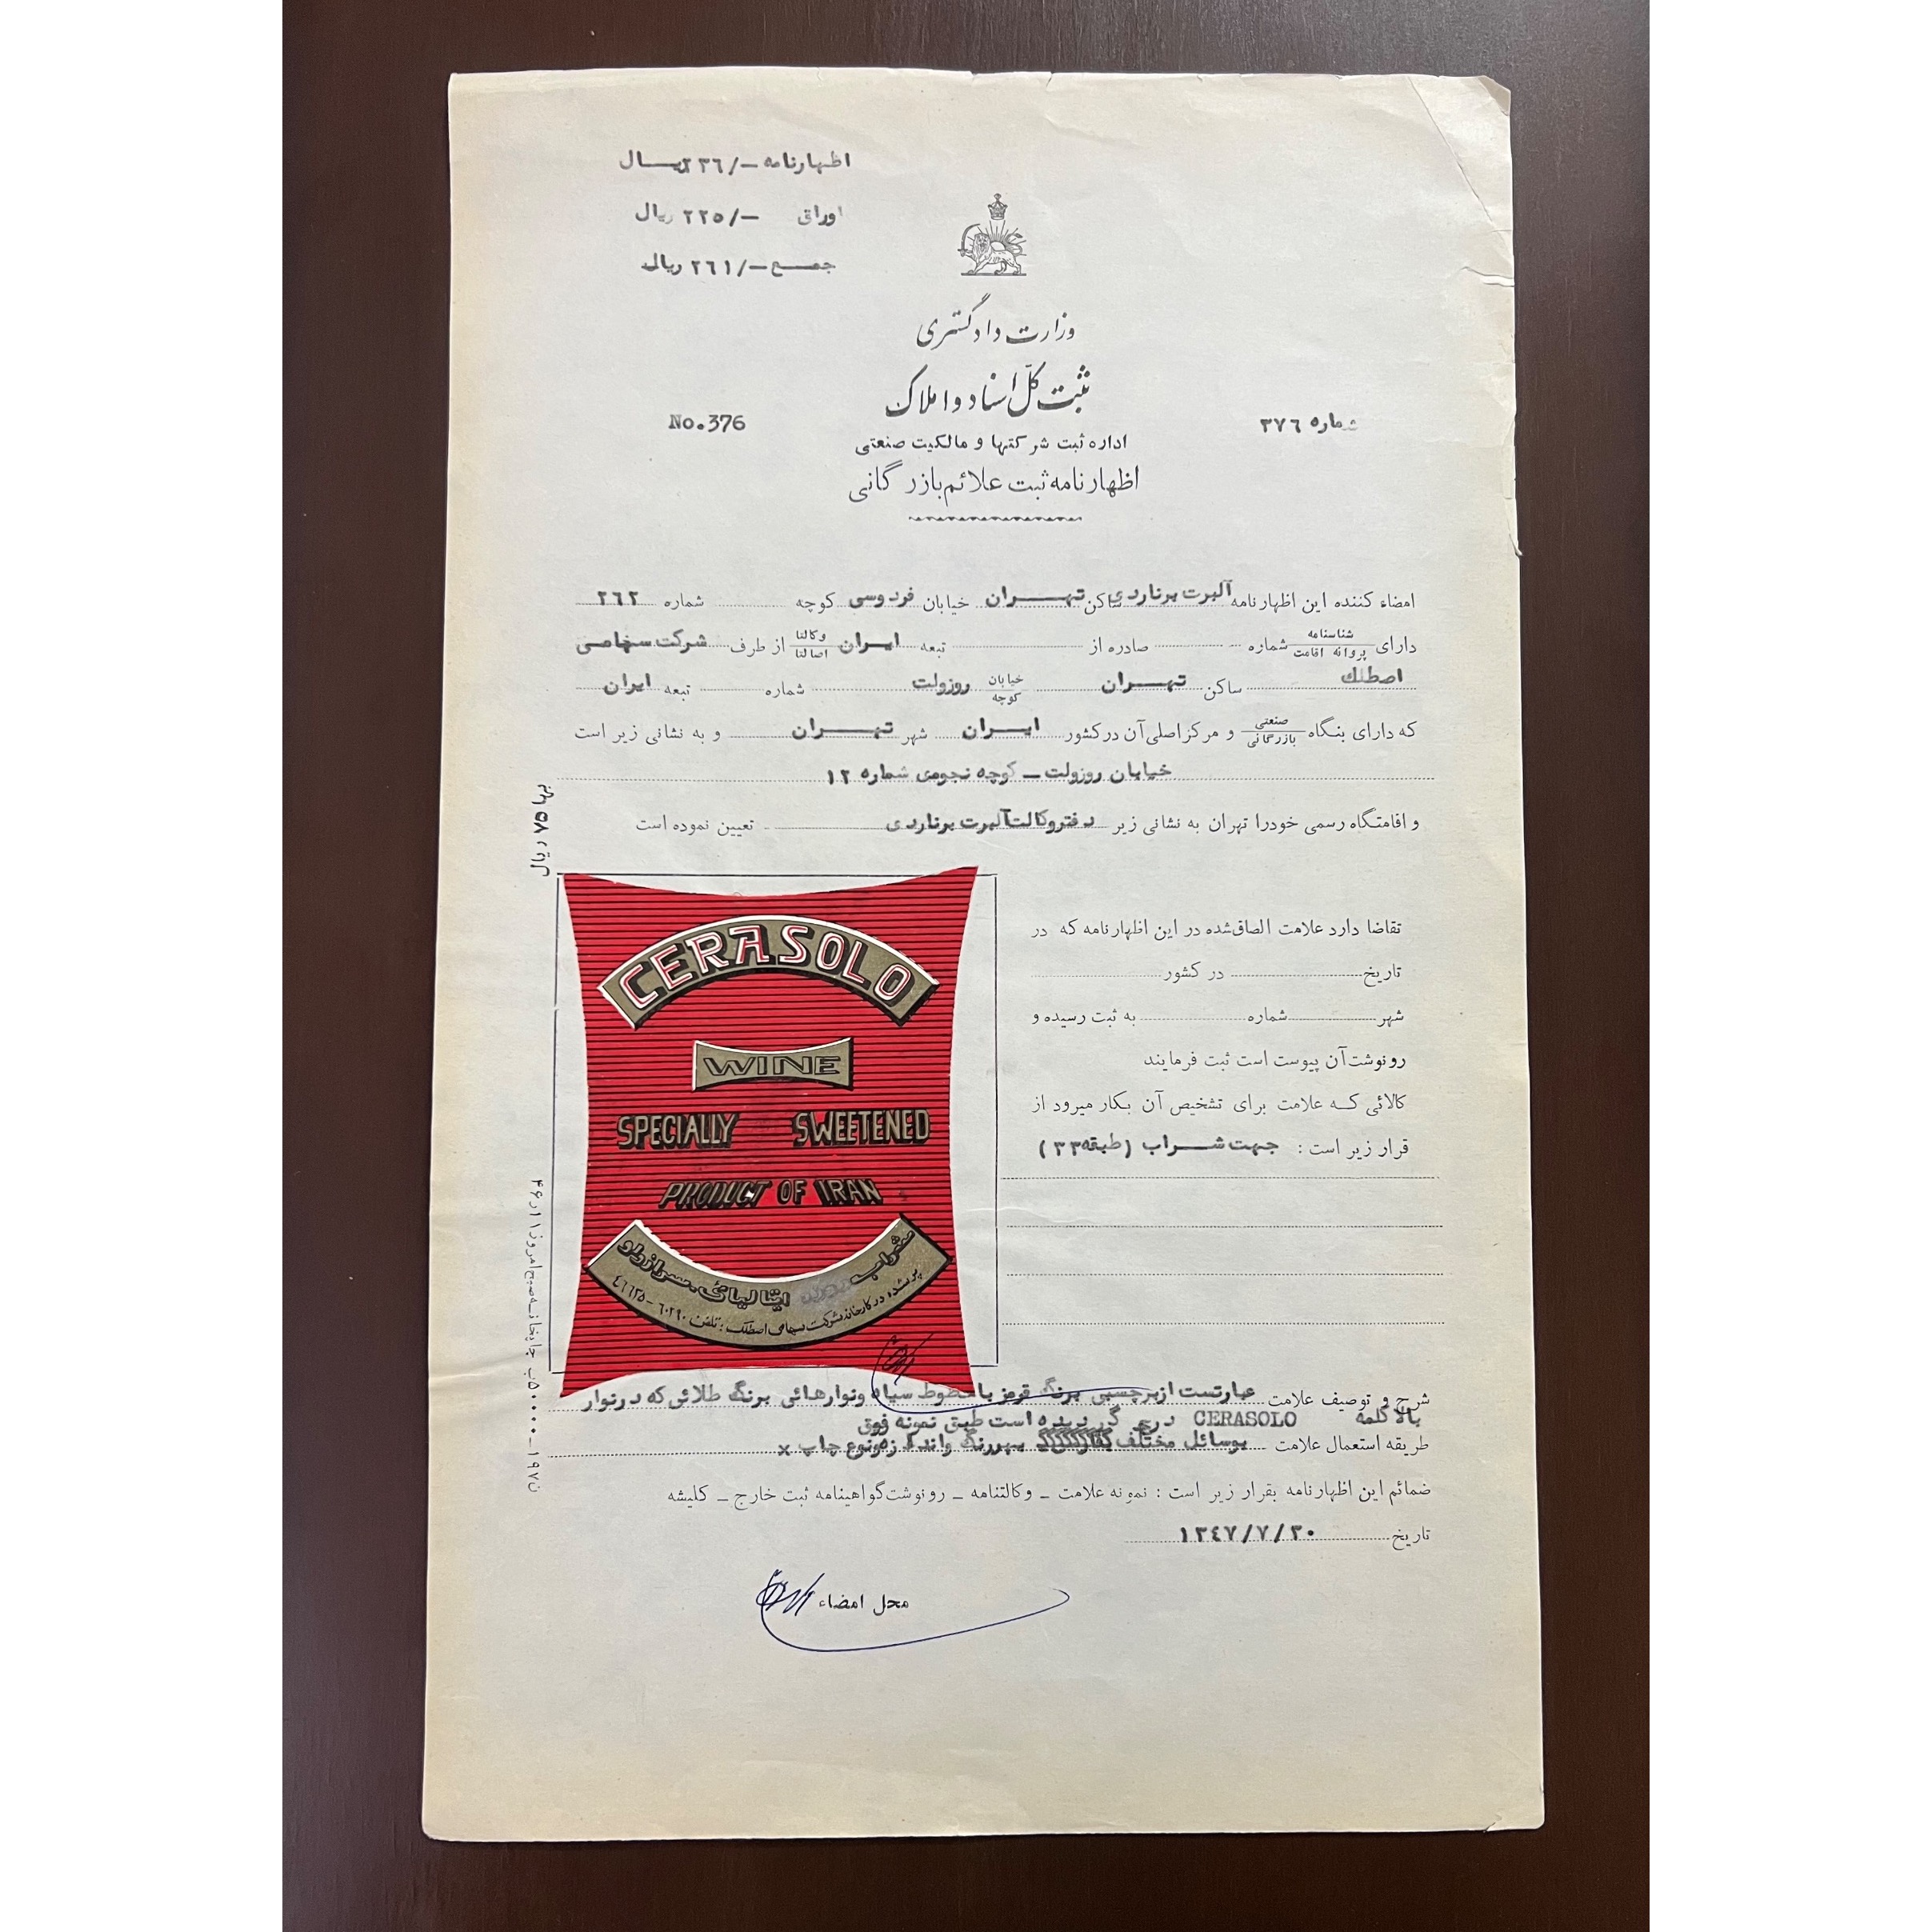 اظهارنامه -/۲۳٦ ریـــال
اوراق -/۲۲٥ ریال
جمـــع -/۲٦۱ ریال
وزارت دادگستری
ثبت کل اسناد و املاک
No.376
شماره ۳۷٦
اداره ثبت شرکتها و مالکیت صنعتی
اظهارنامه ثبت علائم بازرگانی
امضاء کننده این اظهارنامه آلبرت برناردی ساکن تهـــران خیابان فردوسی کوچه شماره ۲٦۲
دارای شناسنامه پروانه اقامت شماره صادره از تبعه ایـران وکالتا اصالتا از طرف شرکت سهامی
اصطلک ساکن تهـــران خیابان کوچه روزولت شماره تبعه ایران
که دارای بنگاه صنعتی بازرگانی و مرکز اصلی آن در کشور ایـــران شهر تهـــران و به نشانی زیر است
خیابان روزولت - کوچه نجومی شماره ۱۲
و اقامتگاه رسمی خودرا تهران به نشانی زیر دفتر وکالت آلبرت برناردی تعیین نموده است
بها ۷۵ ریال
تقاضا دارد علامت الصاق شده در این اظهارنامه که در
تاریخ در کشور
شهر شماره به ثبت رسیده و
رونوشت آن پیوست است ثبت فرمایند
کالائی کـه علامت برای تشخیص آن بکار میرود از
قرار زیر است : جهت شـــراب (طبقه ۳۳)
CERASOLO
WINE
SPECIALLY SWEETENED
PRODUCT OF IRAN
شراب ایتالیائی سرازولو
پرشده در کارخانه شرکت سهامی اصطلک : تلفن ٦۰۲۹۰ - ٤٦٦۲۵
شرح و توصیف علامت عبارتست از برچسبی برنگ قرمز با خطوط سیاه و نوارهائی برنگ طلائی که در نوار
بالا کلمه CERASOLO درج گردیده است طبق نمونه فوق
طریقه استعمال علامت بوسائل مختلف بهر رنگ و اندازه و نوع چاپ x
ضمائم این اظهارنامه بقرار زیر است : نمونه علامت - وکالتنامه - رونوشت گواهینامه ثبت خارج - کلیشه
تاریخ ۱۳٤۷/۷/۳۰
محل امضاء
ن۱۹۷ - ۵۰۰۰۰ب چاپخانه صبح امروز ۴۶ر۱۱